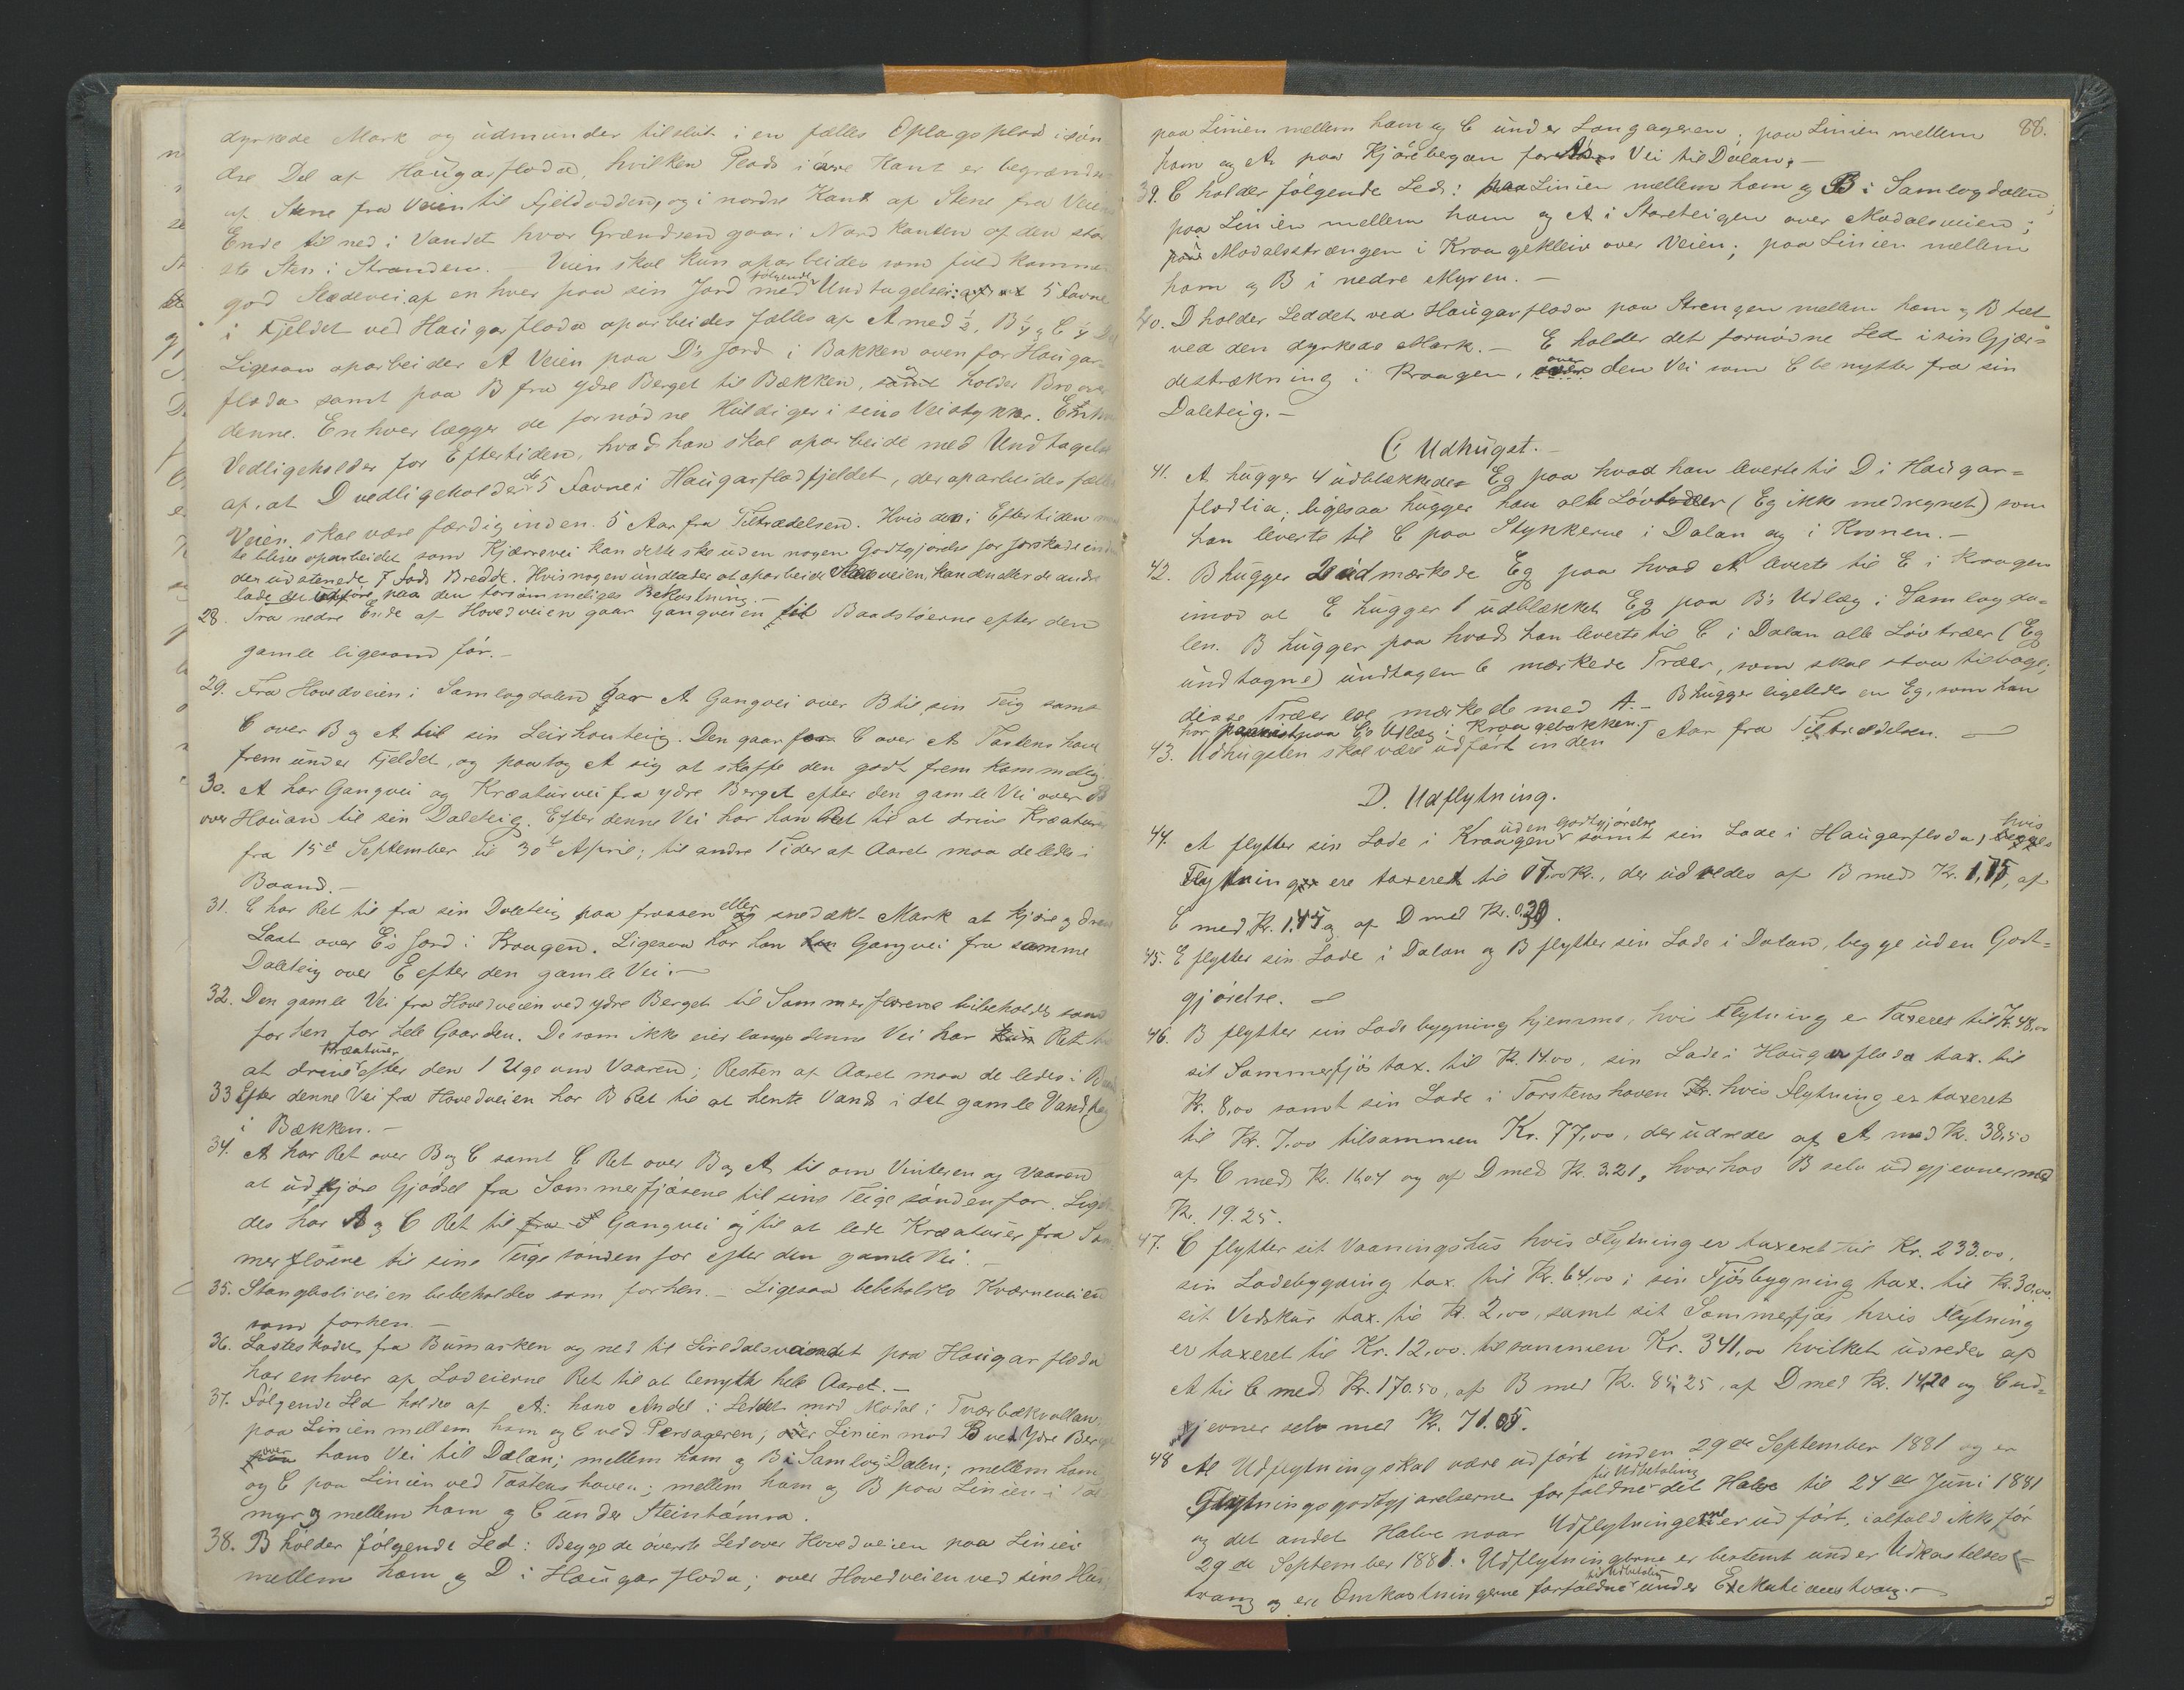 dyrkede Mark og udmunder tilslut i en fælles Oplagsplads i søn
dre Del af Haugarfloda, hvilken Plads i øvre Kant er begrændset
af Stene fra Veien til Fjeldodden, og i nordre Kant af Stene fra Veiens
Ende til ned i Vandet hvor Grændsen gaar i Nordkanten af den stør
ste Sten i Stranden. Veien skal kun oparbeides som fuldkommen
god Slædevei af enhver paa sin Jord med følgende Undtagelser: 5 Favne
i Fjeldet ved Haugarfloda oparbeides fælles af A med ½, B ¼ og C ¼ Del
Ligesaa oparbeider A Veien paa D's Jord i Bakken ovenfor Haugar-
floda samt paa B fra ydre Berget til Bækken, og holder Bro over
denne. Enhver lægger de fornødne Huldiger i sine Veistykker. Enhver
Vedligeholder for Eftertiden, hvad han skal oparbeide med Undtagelse
af, at D vedligeholder de 5 Favne i Haugarflodfjeldet, der oparbeides fælles
Veien skal være færdig inden 5 Aar fra Tiltrædelsen. Hvis den i Eftertiden
blive oparbeidet som Kjærrevei kan dette ske uden nogen Godtgjørelse for Jordskade inden
den udstenede 7 Fods Bredde. Hvis nogen undlader at oparbeide Slædeveien, kan den eller de andre
lade det udføre paa den forsømmeliges Bekostning.-
28. Fra nedre Ende af Hovedveien gaar Gangveien til Baadstøerne efter den
gamle ligesom før.-
29. Fra Hovedveien i Samlagdalen har A Gangvei over B til sin Teig samt
C over B og A til sin Leirhouteig. Den gaar for C over A's Tostenshove
frem under Fjeldet, og paatog A sig at skaffe den godt fremkommelig.
30. A har Gangvei og Kreaturvei fra ydre Berget efter den gamle Vei over B
over Houan til sin Daleteig. Efter denne Vei har han Ret til at drive Kreaturer
fra 15de September til 30te April; til andre Tider af Aaret maa de ledes i
Baand.-
31. C har Ret til fra sin Daleteig paa frossen eller snedækt Mark at kjøre og drive
Last over E's Jord i Kroagen. Ligesaa har han Gangvei fra samme
Daleteig over E efter den gamle Vei.-
32. Den gamle Vei fra Hovedveien ved ydre Berget til Sommerfloerne bibeholdes som
forhen for hele Gaarden. De som ikke eier langs denne Vei har Ret til
at drive Kreaturer efter den 1 Uge om Vaaren; Resten af Aaret maa de ledes i Baand
33 Efter denne Vei fra Hovedveien har B Ret til at hente Vand i det gamle Vandhøg
i Bækken.-
34. A har Ret over B og C samt C Ret over B og A til om Vinteren og Vaaren
at udkjøre Gjødsel fra Sommerfjøsene til sine Teige søndenfor. Lige
des har A og C Ret til Gangvei og til at lede Kreaturer fra Som
merfloene til sine Teige søndenfor efter den gamle Vei.-
35. Stangboliveien bebeholdes som forhen.- Ligesaa bebeholdes Kværneveien
som forhen.-
36. Lasteskodet fra Bumarken og ned til Siredalsvandet paa Haugarfloda
har enhver af Lodeierne Ret til at benytte hele Aaret.-
37. Følgende Led holdes af A: hans Andel i Leddet mod Modal i Tværbækvollan;
paa Linien mellem ham og C ved Persageren; over Linien mod B ved Ydre Berget
over hans Vei til Dalan; mellem ham og B i Samlags-Dalen; mellem ham
og C paa Linien ved Tostenshoven; mellem ham og B paa Linien i
myr og mellem ham og C under Steintømra.
38. B holder følgende Led: Begge de øverste Led over Hovedveien paa Linien
mellem ham og D i Haugarfloda; over Hovedveien ved sine Huse
88.
paa Linien mellem ham og C under Langageren; paa Linien mellem
ham og A paa Kjørebergan for A's Vei til Dalan.-
39. C holder følgende Led: paa Linien mellem ham og B i Samlagdalen;
paa Linien mellem ham og A i Storeteigen over Modalsveien;
paa Modalsstrængen i Kroagekleiv over Veien; paa Linien mellem
ham og B i nedre Myren.-
40. D holder Leddet ved Haugarfloda paa Strengen mellem ham og B tæt
ved den dyrkede Mark.- E holder det fornødne Led i sin Gjær-
destrækning i Kroagen, over den Vei som C benytter fra sin
Daleteig.-
C Udhugst.-
41. A hugger 4 udblækkede Eg paa hvad han leverte til D i Haugar-
flodlia; ligesaa hugger han alle Løvtræer (Eg ikke medregnet) som
han leverte til C paa Stykkerne i Dalan og i Kronen.-
42. B hugger 2 udmærkede Eg paa hvad A leverte til E i Kroagen
imod at E hugger 1 udblækket Eg paa B's Udlæg i Samlagda-
len. B hugger paa hvad han leverte til C i Dalan alle Løvtræer (Eg
undtagne) undtagen 6 mærkede Træer, som skal staa tilbage;
disse Træer ere mærkede med A.- B hugger ligeledes en Eg, som han
har paa C's Udlæg i Kroagebakken.
43. Udhugsten skal være udført inden 5 Aar fra Tiltrædelsen.-
D. Udflytning.
44. A flytter sin Lade i Kroagen uden Godtgjørelse samt sin Lade i Haugarfloda, hvis
Flytning ere taxeret til 7.00 Kr., der udredes af B med Kr. 1,75, af
C med Kr. 1.45 og af D med Kr. 0.30.
45. E flytter sin Lade i Dalan og B flytter sin Lade i Dalan, begge uden Godt-
gjørelse.-
46. B flytter sin Ladebygning hjemme, hvis Flytning er Taxeret til Kr. 48,00
sit Sommerfjøs tax. til Kr. 14.00, sin Lade i Haugarfloda tax. til
Kr. 8,00 samt sin Lade i Torstenshoven hvis Flytning er taxeret
til Kr. 7.00 tilsammen Kr. 77,00, der udredes af A med Kr. 38.50
af C med Kr. 16.04 og af D med Kr. 3.21, hvorhos B selv udgjevner med
Kr. 19.25.
47. C flytter sit Vaaningshus hvis Flytning er taxeret til Kr. 233.00,
sin Ladebygning tax. til Kr. 64,00; sin Fjøsbygning tax. til Kr. 30,00.
sit Vedskur tax. til Kr. 2,00, samt sit Sommerfjøs hvis Flytning
er taxeret til Kr. 12,00. tilsammen Kr. 341,00 hvilket udredes af
A til C med Kr. 170.50, af B med Kr. 85,25, af D med Kr. 14,20 og C ud-
gjevner selv med Kr. 71.05.
48 Al Udflytning skal være udført inden 29de September 1881 og er
Flytningsgodtgjørelserne forfaldne til Udbetaling det Halve til 24de Juni 1881
og det andet Halve naar Udflytningerne er udført, ialfald ikke før
29de September 1881. Udflytningerne er bestemt under Udkastelses-
tvang og ere Omkostningerne forfaldne til Udbetaling under Exekutionstvang.-